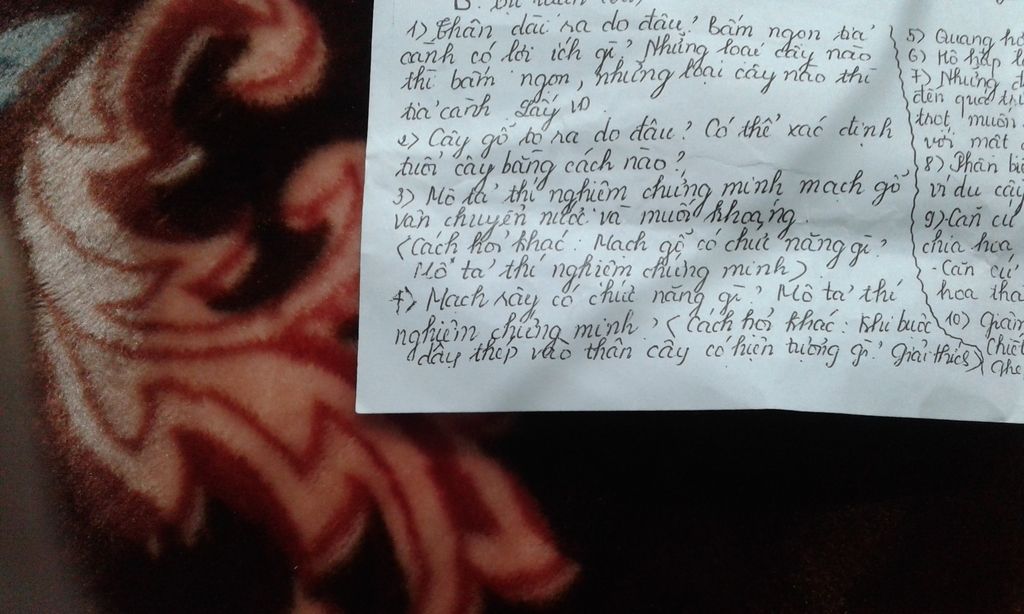 B.
1) Thân dài ra do đâu? Bấm ngọn tỉa
cành có lợi ích gì? Những loại cây nào
thì bấm ngọn, những loại cây nào thì
tỉa cành. Lấy VD.
2) Cây gỗ to ra do đâu? Có thể xác định
tuổi cây bằng cách nào?
3) Mô tả thí nghiệm chứng minh mạch gỗ
vận chuyển nước và muối khoáng.
(Cách hỏi khác: Mạch gỗ có chức năng gì?
Mô tả thí nghiệm chứng minh)
4) Mạch rây có chức năng gì? Mô tả thí
nghiệm chứng minh? (Cách hỏi khác: Khi buộc
dây thép vào thân cây có hiện tượng gì? Giải thích)
5) Quang
6) Hô hấp
7) Những
đến quá
trọt muốn
với mật
8) Phân
ví dụ cây
9) Căn cứ
chia hoa
- Căn cứ
hoa
10)